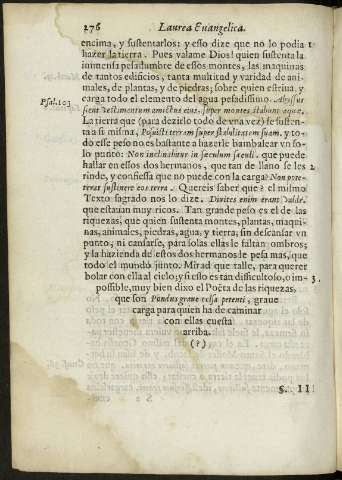 276 Laurea Euangelica.
encima, y sustentarlos: y esso dize que no lo podia 1
hazer la tierra. Pues valame Dios! quien sustenta la
inmensa pesadumbre de essos montes, las maquinas
de tantos edificios, tanta multitud y varidad de ani-
males, de plantas, y de piedras; sobre quien estriua, y
carga todo el elemento del agua pesadissimo. Abyssus
Psal. 103 sicut vestimentum amictus eius, super montes stabunt aquæ.
La tierra que (para dezirlo todo de vna vez) se susten-
ta a si misma, Posuisti terram super stabilitatem suam. y to-
do esse peso no es bastante a hazerle bambalear vn so-
lo punto: Non inclinabitur in sæculum sæculi. que puede
hallar en essos dos hermanos, que tan de llano se les 2
rinde, y confiessa que no puede con la carga? Non pote-
rat sustinere eos terra. Quereis saber que? el mismo
Texto sagrado nos lo dize. Divites enim erant valde.
que estauan muy ricos. Tan grande peso es el de las
riquezas, que quien sustenta montes, plantas, maqui-
nas, animales, piedras, agua, y tierra; sin descansar vn
punto, ni cansarse, para solas ellas le faltan ombros;
y la hazienda de estos dos hermanos le pesa mas, que
todo el mundo junto. Mirad que talle, para querer
bolar con ella al cielo; y si esso es tan dificultoso, o im- 3
possible, muy bien dixo el Poëta de las riquezas,
que son Pondus graue celsa petenti, graue
carga para quien ha de caminar
con ellas cuesta
arriba.
(?)
§. II